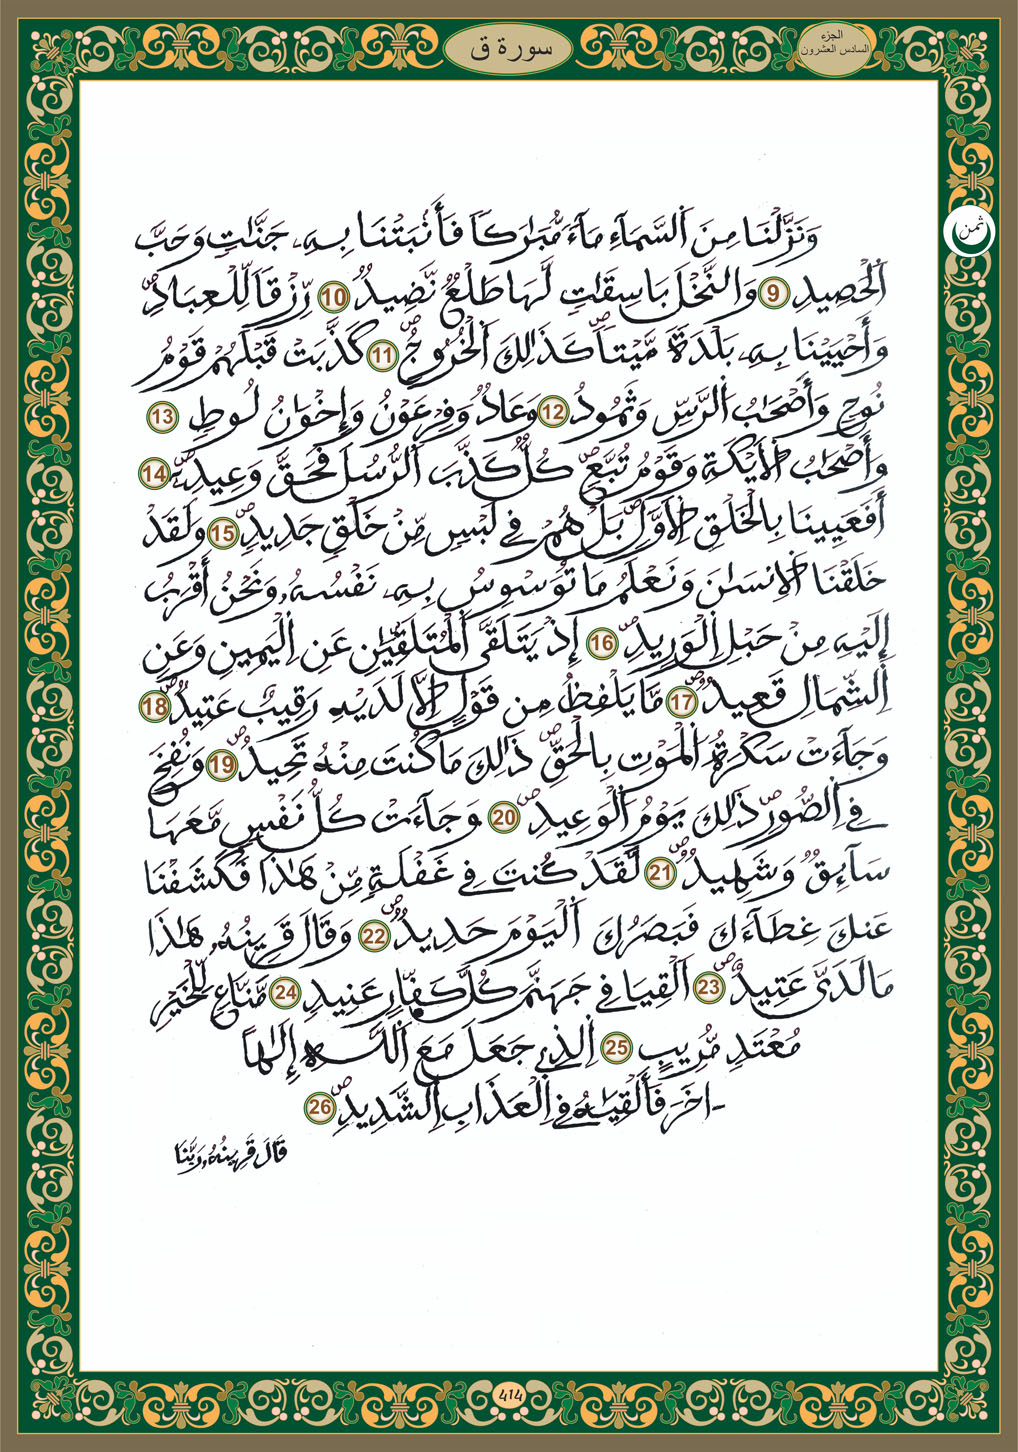 الجزء
السادس العشرون
سورة ق
ثمن
وَنَزَّلْنَا مِنَ اَلسَّمَآءِ مَآءَ مُّبَٰرَكاَ فَأَنۢبَتْنَا بِهِۦ جَنَّٰتٖ وَحَبَّ
اَلْحَصِيدِ 9 وَالنَّخْلَ بَاسِقَٰتٖ لَّهَا طَلْعٞ نَّضِيدٞ 10 رِّزْقاَ لِّلْعِبَادِۖ
وَأَحْيَيْنَا بِهِۦ بَلْدَةَ مَّيْتاَۖ كَذَٰلِكَ اَلْخُرُوجُۖ 11 كَذَّبَتْ قَبْلَهُمْ قَوْمُ
نُوحٖ وَأَصْحَٰبُ اُلرَّسِّ وَثَمُودُ 12 وَعَادٞ وَفِرْعَوْنُ وَإِخْوَٰنُ لُوطٖ 13
وَأَصْحَٰبُ اُلَايْكَةِ وَقَوْمُ تُبَّعٖۖ كُلّٞ كَذَّبَ اَلرُّسُلَ فَحَقَّ وَعِيدِۦۖ 14
أَفَعَيِينَا بِالْخَلْقِ اِلَاوَّلِۖ بَلْ هُمْ فِے لَبْسٖ مِّنْ خَلْقٖ جَدِيدٖۖ 15 وَلَقَدْ
خَلَقْنَا اَلِانسَٰنَ وَنَعْلَمُ مَا تُوَسْوِسُ بِهِۦ نَفْسُهُۥ وَنَحْنُ أَقْرَبُ
إِلَيْهِ مِنْ حَبْلِ اِلْوَرِيدِۖ 16 إِذْ يَتَلَقَّى اَلْمُتَلَقِّيَٰنِ عَنِ اِلْيَمِينِ وَعَنِ
اِلشِّمَالِ قَعِيدٞۖ 17 مَّا يَلْفِظُ مِن قَوْلٍ اِلَّا لَدَيْهِ رَقِيبٌ عَتِيدٞۖ 18
وَجَآءَتْ سَكْرَةُ اُلْمَوْتِ بِالْحَقِّۖ ذَٰلِكَ مَا كُنتَ مِنْهُ تَحِيدُۖ 19 وَنُفِخَ
فِے اِلصُّورِۖ ذَٰلِكَ يَوْمُ اُلْوَعِيدِۖ 20 وَجَآءَتْ كُلُّ نَفْسٖ مَّعَهَا
سَآئِقٞ وَشَهِيدٞۖ 21 لَّقَدْ كُنتَ فِے غَفْلَةٖ مِّنْ هَٰذَا فَكَشَفْنَا
عَنكَ غِطَآءَكَ فَبَصَرُكَ اَلْيَوْمَ حَدِيدٞۖ 22 وَقَالَ قَرِينُهُۥ هَٰذَا
مَا لَدَىَّ عَتِيدٌۖ 23 اَلْقِيَا فِے جَهَنَّمَ كُلَّ كَفَّارٍ عَنِيدٖ 24 مَّنَّاعٖ لِّلْخَيْرِ
مُعْتَدٖ مُّرِيبٍ 25 اِلذِے جَعَلَ مَعَ اَللَّهِ إِلَٰهاً
ـاخَرَ فَأَلْقِيَٰهُ فِے اِلْعَذَابِ اِلشَّدِيدِۖ 26
قَالَ قَرِينُهُۥ رَبَّنَا
414